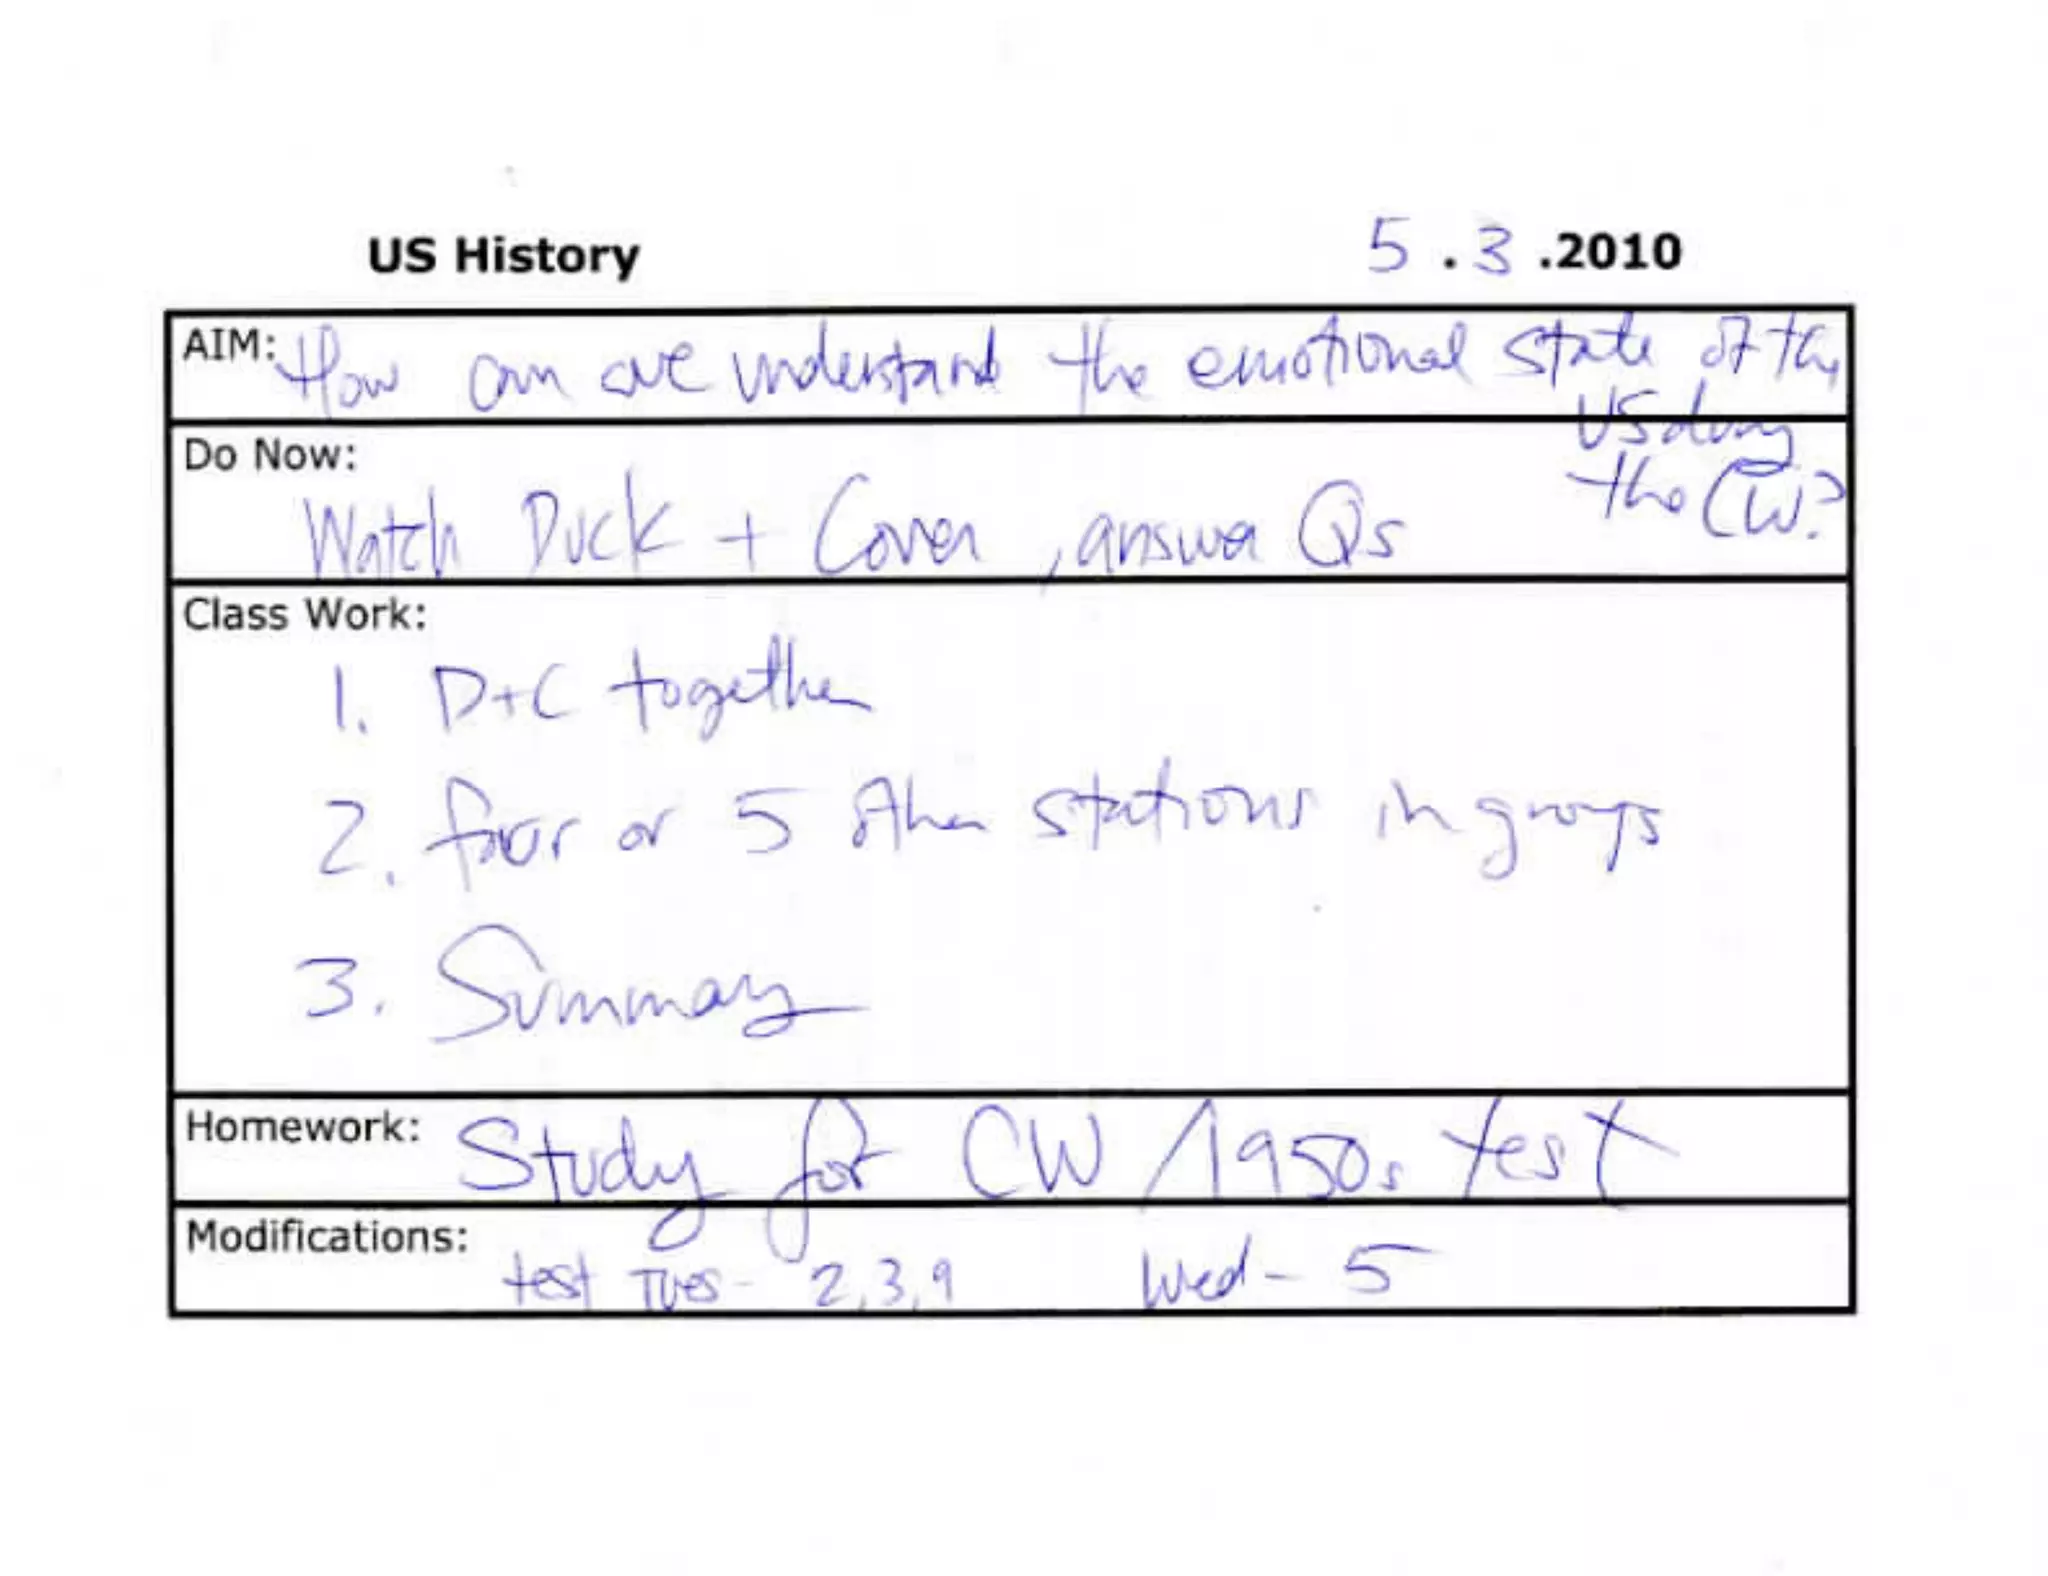 US History 5.3.2010
AIM: How can we understand the emotional state of the
US during
the CW?
Do Now:
Watch Duck + Cover, answer Qs
Class Work:
1. D+C together
2. four or 5 other stations in groups
3. Summary
Homework: Study for CW/1950s test
Modifications: test Tues - 2,3,9 Wed - 5